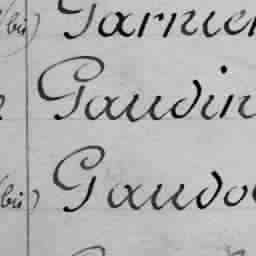 (bis) Garnier
Gaudin
(bis) Gaudo